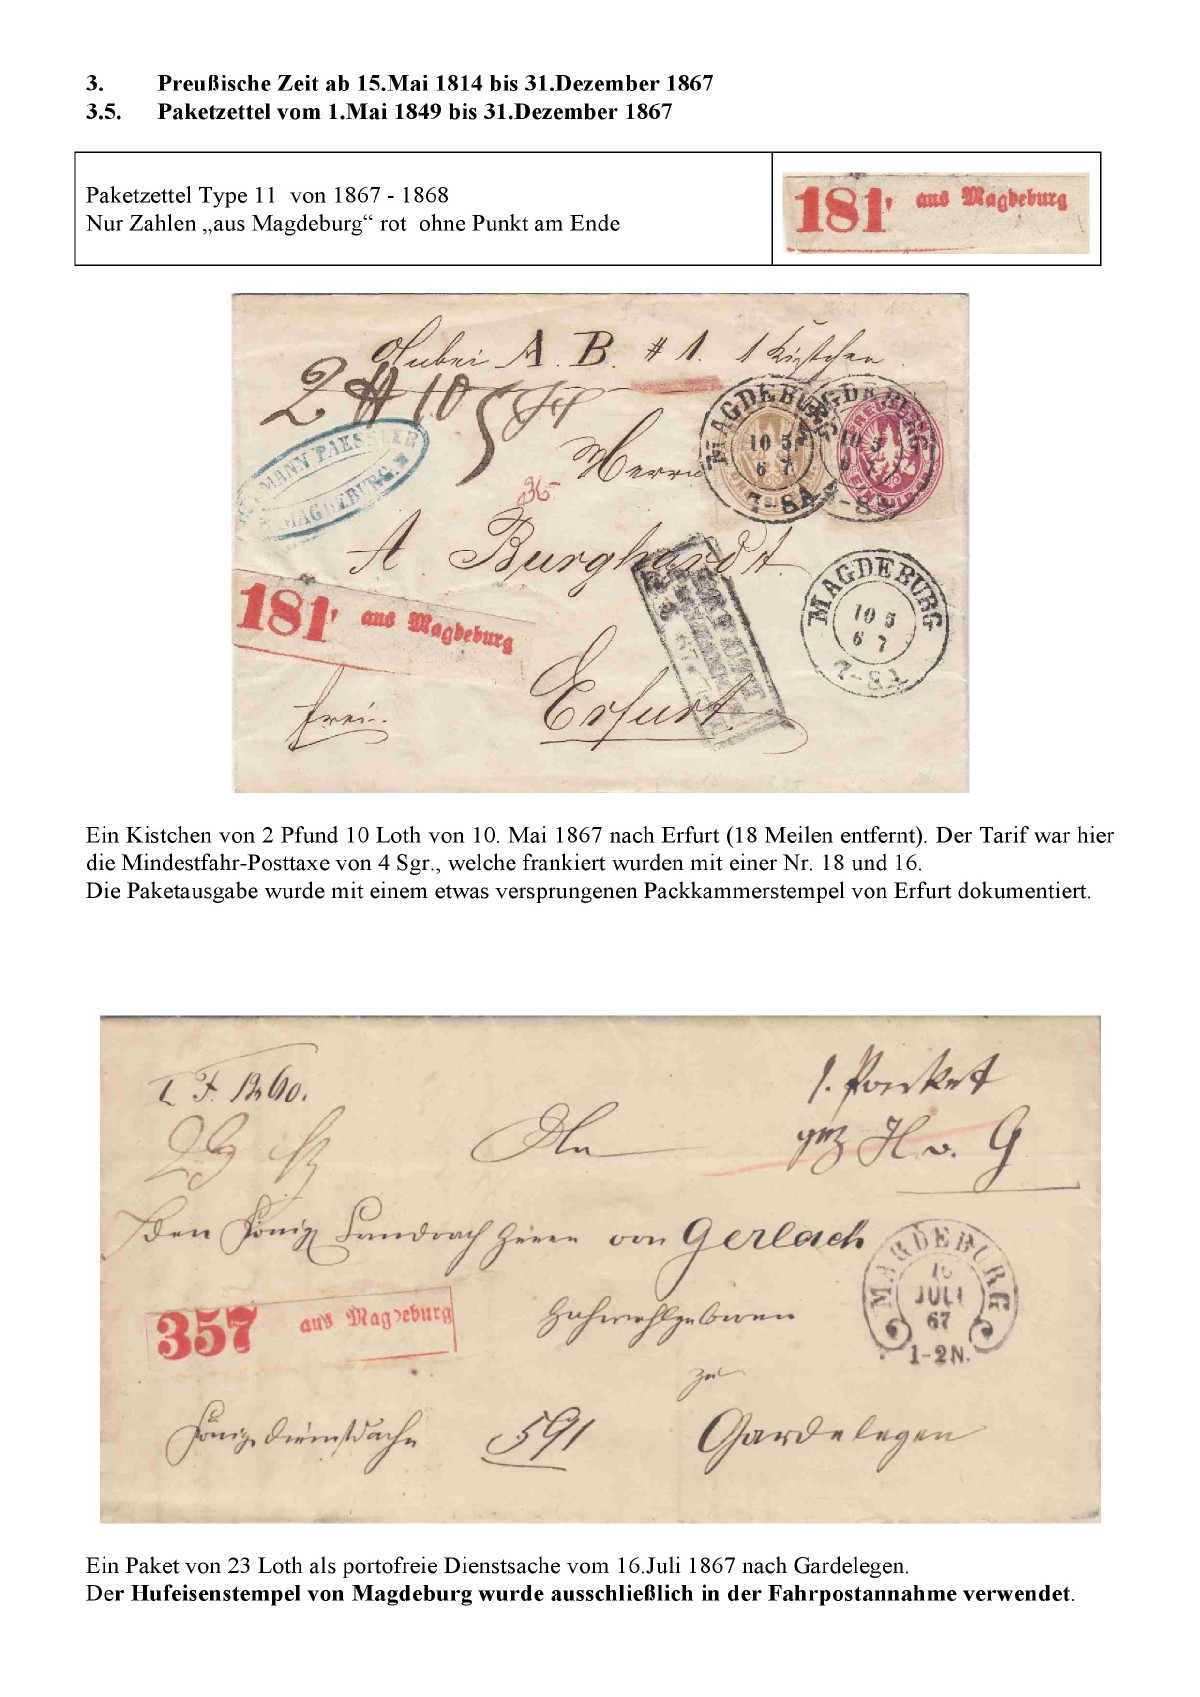 3. Preußische Zeit ab 15.Mai 1814 bis 31.Dezember 1867
3.5. Paketzettel vom 1.Mai 1849 bis 31.Dezember 1867
Paketzettel Type 11 von 1867 - 1868
Nur Zahlen „aus Magdeburg“ rot ohne Punkt am Ende
181 aus Magdeburg
A. B. # 1. 1 Kistchen
2 10
MAGDEBURG
10 5
6 7
7-8A
MAGDEBURG
10 5
6 7
7-8
Herrn
PAESSLER
MAGDEBURG.
36
A. Burghardt.
181 aus Magdeburg
MAGDEBURG
10 5
6 7
7-8A
frei.
Erfurt
Ein Kistchen von 2 Pfund 10 Loth von 10. Mai 1867 nach Erfurt (18 Meilen entfernt). Der Tarif war hier
die Mindestfahr-Posttaxe von 4 Sgr., welche frankiert wurden mit einer Nr. 18 und 16.
Die Paketausgabe wurde mit einem etwas versprungenen Packkammerstempel von Erfurt dokumentiert.
1. Packet
gez H. v. G
23
An
den Königl Landrath Herrn von Gerlach
MAGDEBURG
16
JULI
67
1-2N.
357 aus Magdeburg
Hochwohlgeboren
zu
591
Gardelegen
Ein Paket von 23 Loth als portofreie Dienstsache vom 16.Juli 1867 nach Gardelegen.
Der Hufeisenstempel von Magdeburg wurde ausschließlich in der Fahrpostannahme verwendet.